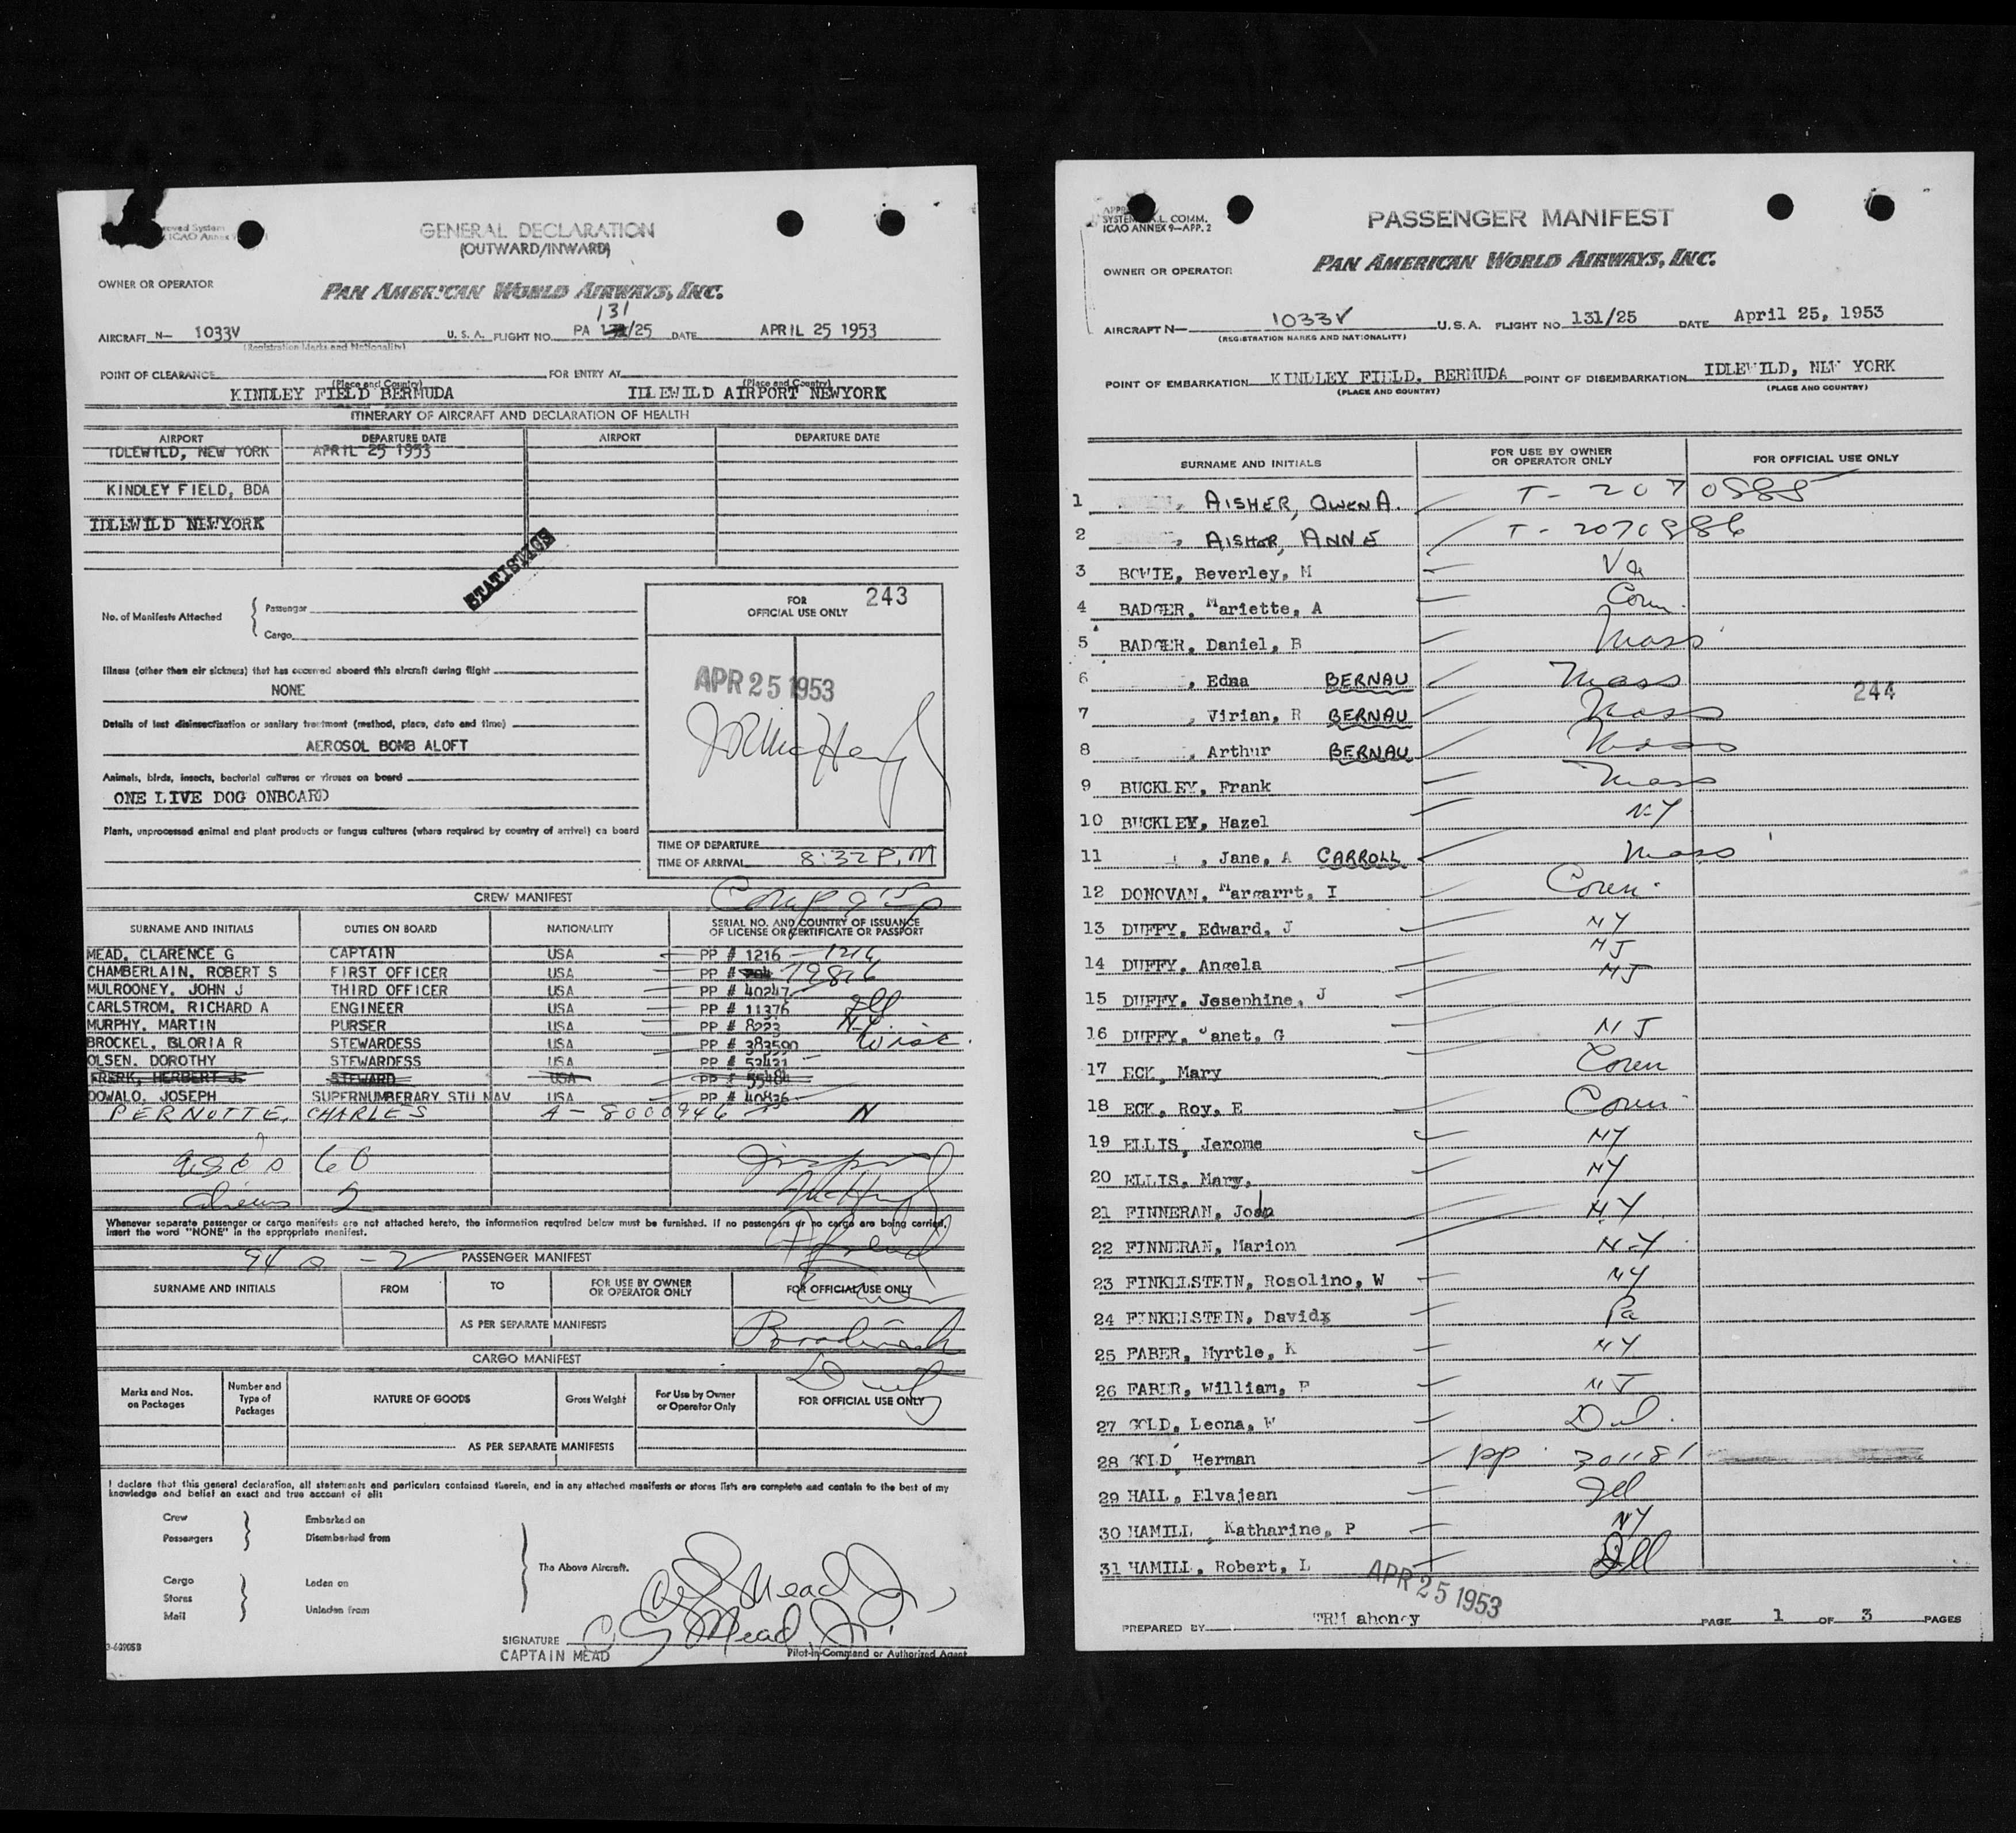 GENERAL DECLARATION
(OUTWARD/INWARD)
OWNER OR OPERATOR
PAN AMERICAN WORLD AIRWAYS, INC.
131
AIRCRAFT N- 1033V U. S. A. FLIGHT NO. PA /25 DATE APRIL 25 1953
(Registration Marks and Nationality)
POINT OF CLEARANCE KINDLEY FIELD BERMUDA (Place and Country) FOR ENTRY AT IDLEWILD AIRPORT NEWYORK (Place and Country)
ITINERARY OF AIRCRAFT AND DECLARATION OF HEALTH
AIRPORT DEPARTURE DATE AIRPORT DEPARTURE DATE
IDLEWILD, NEW YORK APRIL 25 1953
KINDLEY FIELD, BDA
IDLEWILD NEWYORK
STATISTICS
No. of Manifests Attached { Passenger
Cargo
FOR OFFICIAL USE ONLY 243
Illness (other than air sickness) that has occurred aboard this aircraft during flight
NONE
APR 25 1953
Details of last disinsectisation or sanitary treatment (method, place, date and time)
AEROSOL BOMB ALOFT
Animals, birds, insects, bacterial cultures or viruses on board
ONE LIVE DOG ONBOARD
Plants, unprocessed animal and plant products or fungus cultures (where required by country of arrival) on board
TIME OF DEPARTURE
TIME OF ARRIVAL 8:32 P.M
CREW MANIFEST
SURNAME AND INITIALS DUTIES ON BOARD NATIONALITY SERIAL NO. AND COUNTRY OF ISSUANCE OF LICENSE OR CERTIFICATE OR PASSPORT
MEAD, CLARENCE G CAPTAIN USA PP # 1216 1216
CHAMBERLAIN, ROBERT S FIRST OFFICER USA PP # 19816
MULROONEY, JOHN J THIRD OFFICER USA PP # 40247
CARLSTROM, RICHARD A ENGINEER USA PP # 11376 Ill
MURPHY, MARTIN PURSER USA PP # 8223 N.Y.
BROCKEL, BLORIA R STEWARDESS USA PP # 383590 Wisc.
OLSEN, DOROTHY STEWARDESS USA PP # 52421
FRERK, HERBERT J. STEWARD USA PP # 55484
DOWALO, JOSEPH SUPERNUMBERARY STU NAV USA PP # 40836
PERNOTTE, CHARLES A-8000946 N
60
aliens 2
Whenever separate passenger or cargo manifests are not attached hereto, the information required below must be furnished. If no passengers or no cargo are being carried, insert the word "NONE" in the appropriate manifest.
PASSENGER MANIFEST
SURNAME AND INITIALS FROM TO FOR USE BY OWNER OR OPERATOR ONLY FOR OFFICIAL USE ONLY
AS PER SEPARATE MANIFESTS
CARGO MANIFEST
Marks and Nos. on Packages Number and Type of Packages NATURE OF GOODS Gross Weight For Use by Owner or Operator Only FOR OFFICIAL USE ONLY
AS PER SEPARATE MANIFESTS
I declare that this general declaration, all statements and particulars contained therein, and in any attached manifests or stores lists are complete and contain to the best of my knowledge and belief an exact and true account of all:
Crew Embarked on
Passengers Disembarked from
The Above Aircraft.
Cargo Laden on
Stores
Mail Unladen from
C G Mead, Jr.
SIGNATURE C. G. Mead, Jr.
CAPTAIN MEAD Pilot-in-Command or Authorized Agent
SYSTEM COMM.
ICAO ANNEX 9—APP. 2
PASSENGER MANIFEST
OWNER OR OPERATOR PAN AMERICAN WORLD AIRWAYS, INC.
AIRCRAFT N— 1033V U.S.A. FLIGHT NO 131/25 DATE April 25, 1953
(REGISTRATION MARKS AND NATIONALITY)
POINT OF EMBARKATION KINDLEY FIELD, BERMUDA POINT OF DISEMBARKATION IDLEWILD, NEW YORK
(PLACE AND COUNTRY) (PLACE AND COUNTRY)
SURNAME AND INITIALS FOR USE BY OWNER OR OPERATOR ONLY FOR OFFICIAL USE ONLY
1 AISHER, OWEN A. T-2070885
2 AISHER, ANNE T-2070886
3 BOWIE, Beverley, M Va
4 BADGER, Mariette, A Conn.
5 BADGER, Daniel, B Mass
6 , Edna BERNAU Mass
244
7 , Virian, R BERNAU Mass
8 , Arthur BERNAU Mass
9 BUCKLEY, Frank Mass
10 BUCKLEY, Hazel N-Y
11 , Jane, A CARROLL Mass
12 DONOVAN, Margarrt, I Conn.
13 DUFFY, Edward, J NY
14 DUFFY, Angela NJ
15 DUFFY, Josephine, J NJ
16 DUFFY, Janet, G NJ
17 ECK, Mary Conn
18 ECK, Roy, E Conn
19 ELLIS, Jerome NY
20 ELLIS, Mary, NY
21 FINNERAN, John NY
22 FINNERAN, Marion N-Y
23 FINKELSTEIN, Rosolino, W NY
24 FINKELSTEIN, Davidx Pa
25 FABER, Myrtle, K NY
26 FABER, William, F NJ
27 GOLD, Leona, W
28 GOLD, Herman pp 301181
29 HALL, Elvajean Ill
30 HAMILL, Katharine, P NY
31 HAMILL, Robert, L Ill
APR 25 1953
PREPARED BY TRM ahoney PAGE 1 OF 3 PAGES